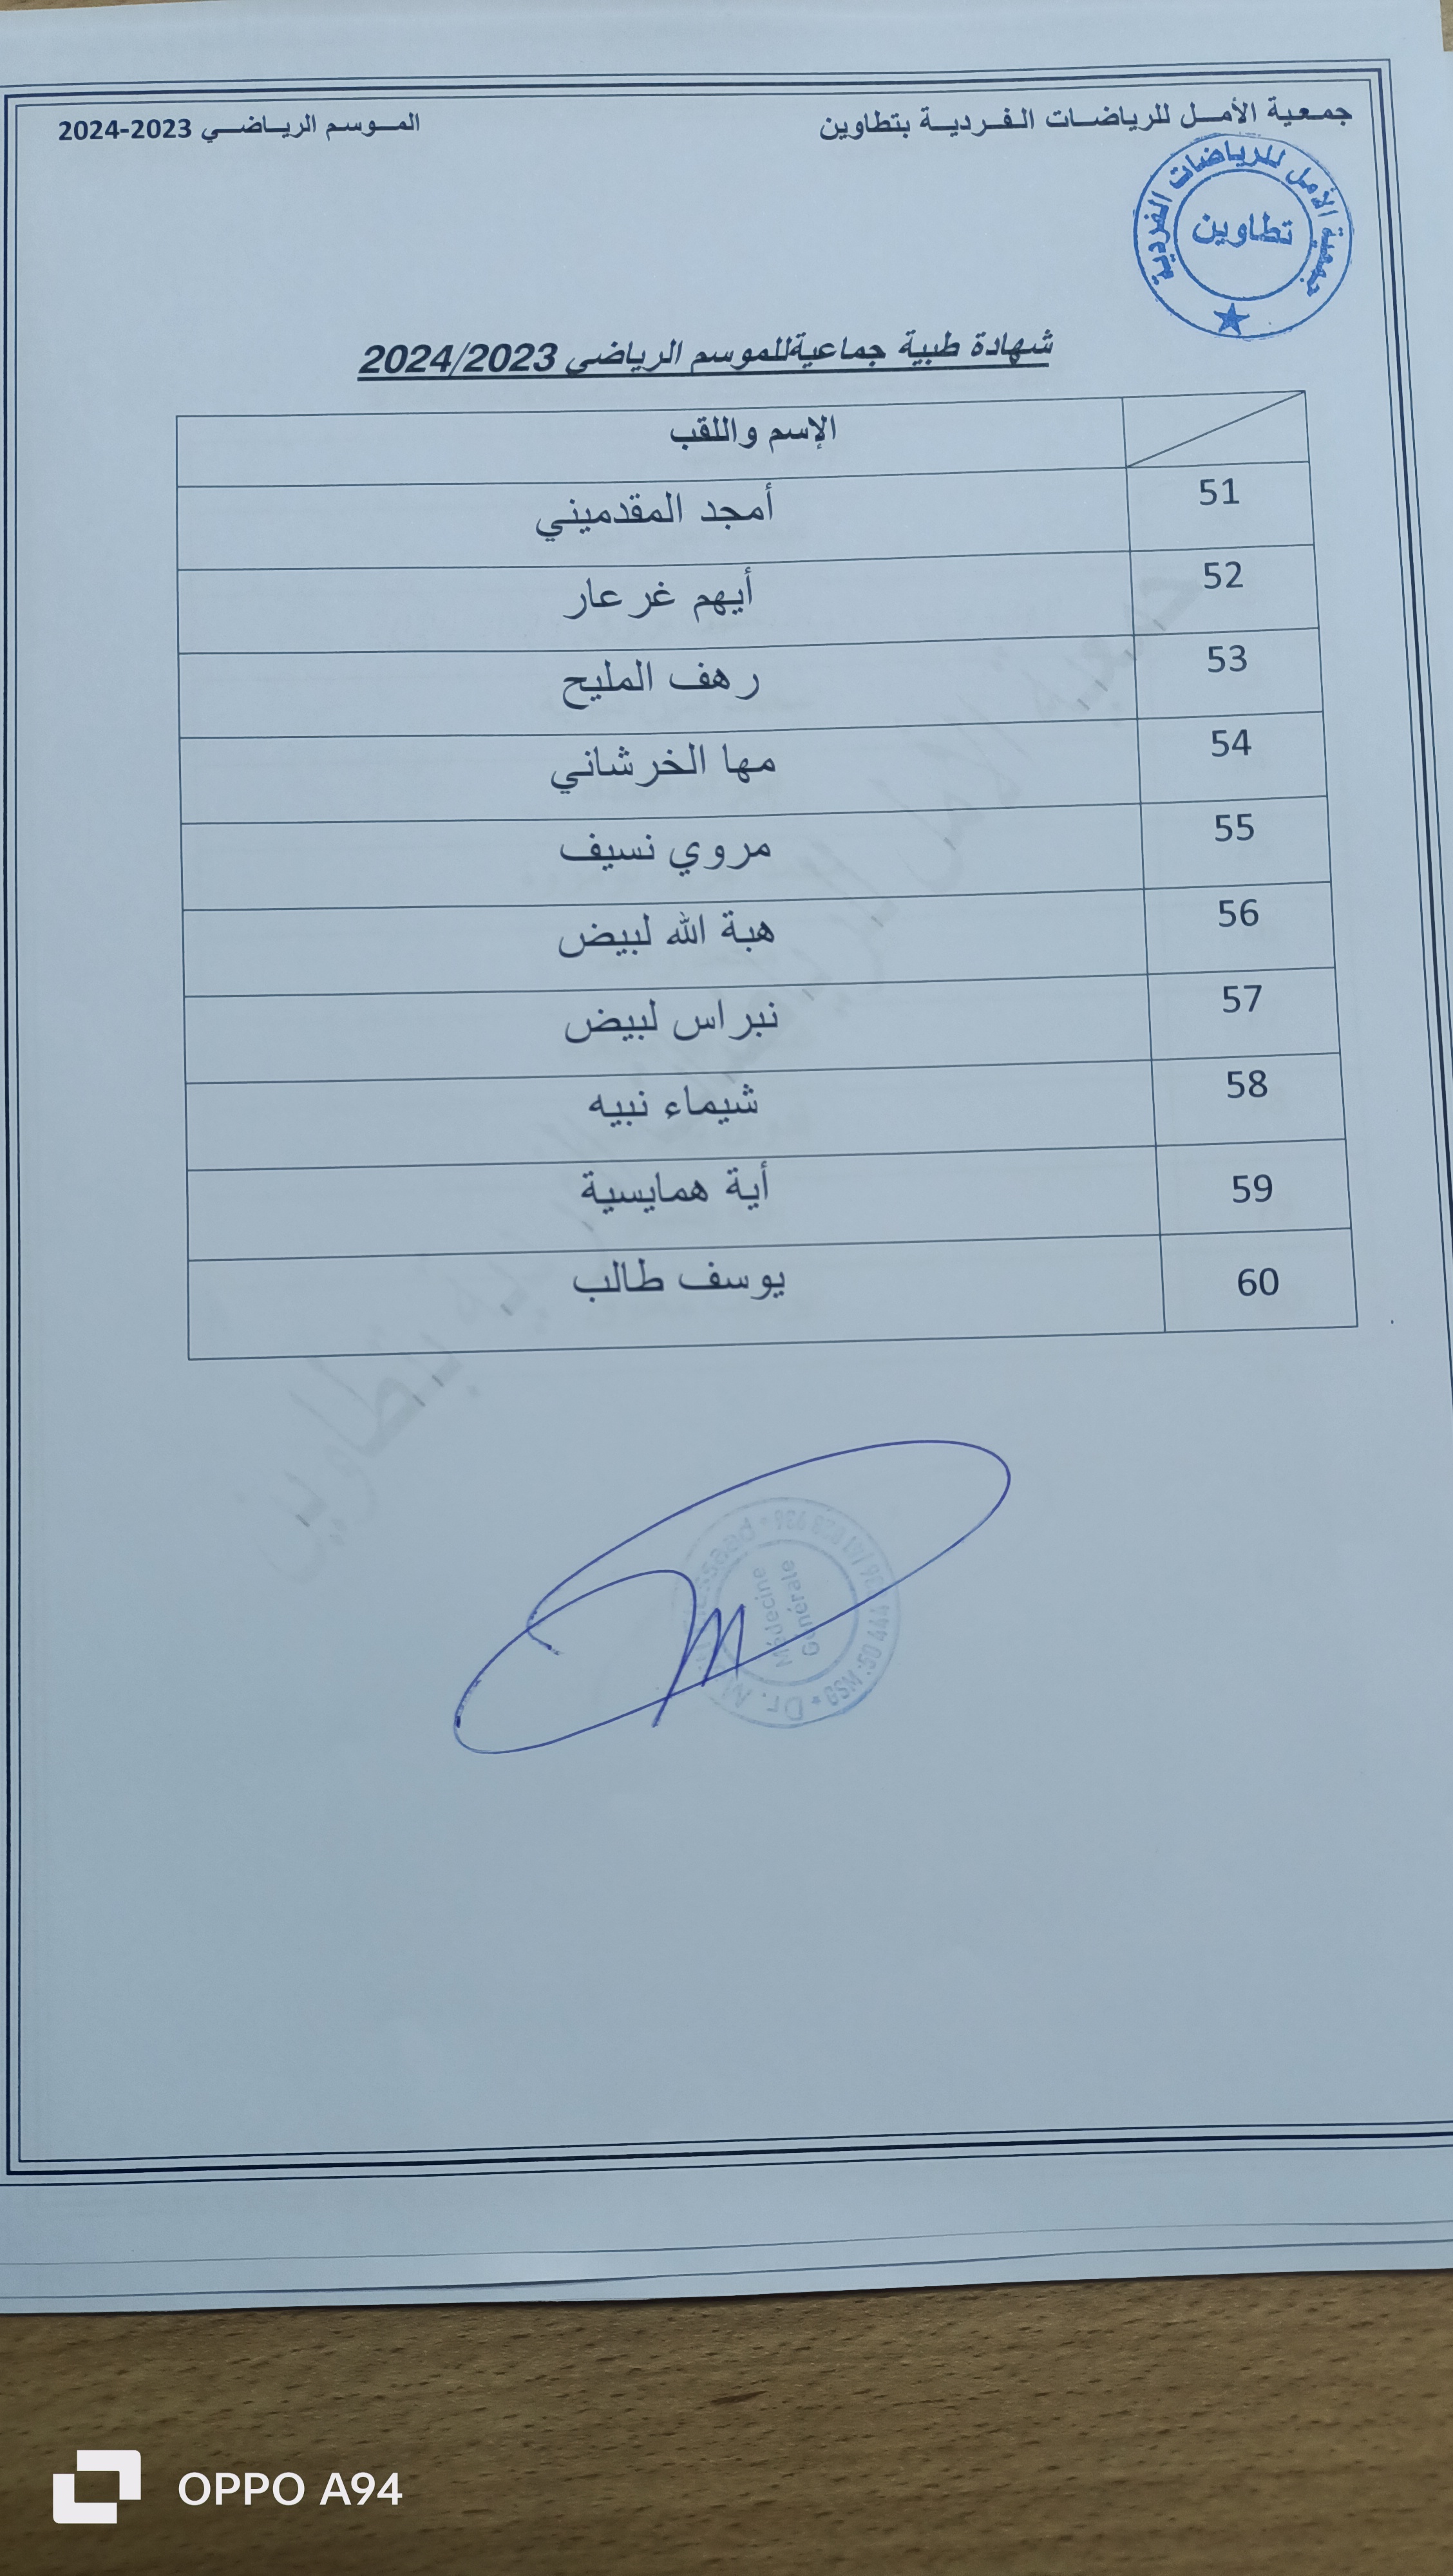 جمعية الأمل للرياضات الفردية بتطاوين
الموسم الرياضي 2023-2024
جمعية الأمل للرياضات الفردية
تطاوين
شهادة طبية جماعيةللموسم الرياضي 2024/2023
الإسم واللقب
51 أمجد المقدميني
52 أيهم غرعار
53 رهف المليح
54 مها الخرشاني
55 مروي نسيف
56 هبة الله لبيض
57 نبراس لبيض
58 شيماء نبيه
59 أية همايسية
60 يوسف طالب
جمعية الأمل للرياضات الفردية بتطاوين
Médecine
Générale
Dr. M
GSM :50 444
OPPO A94